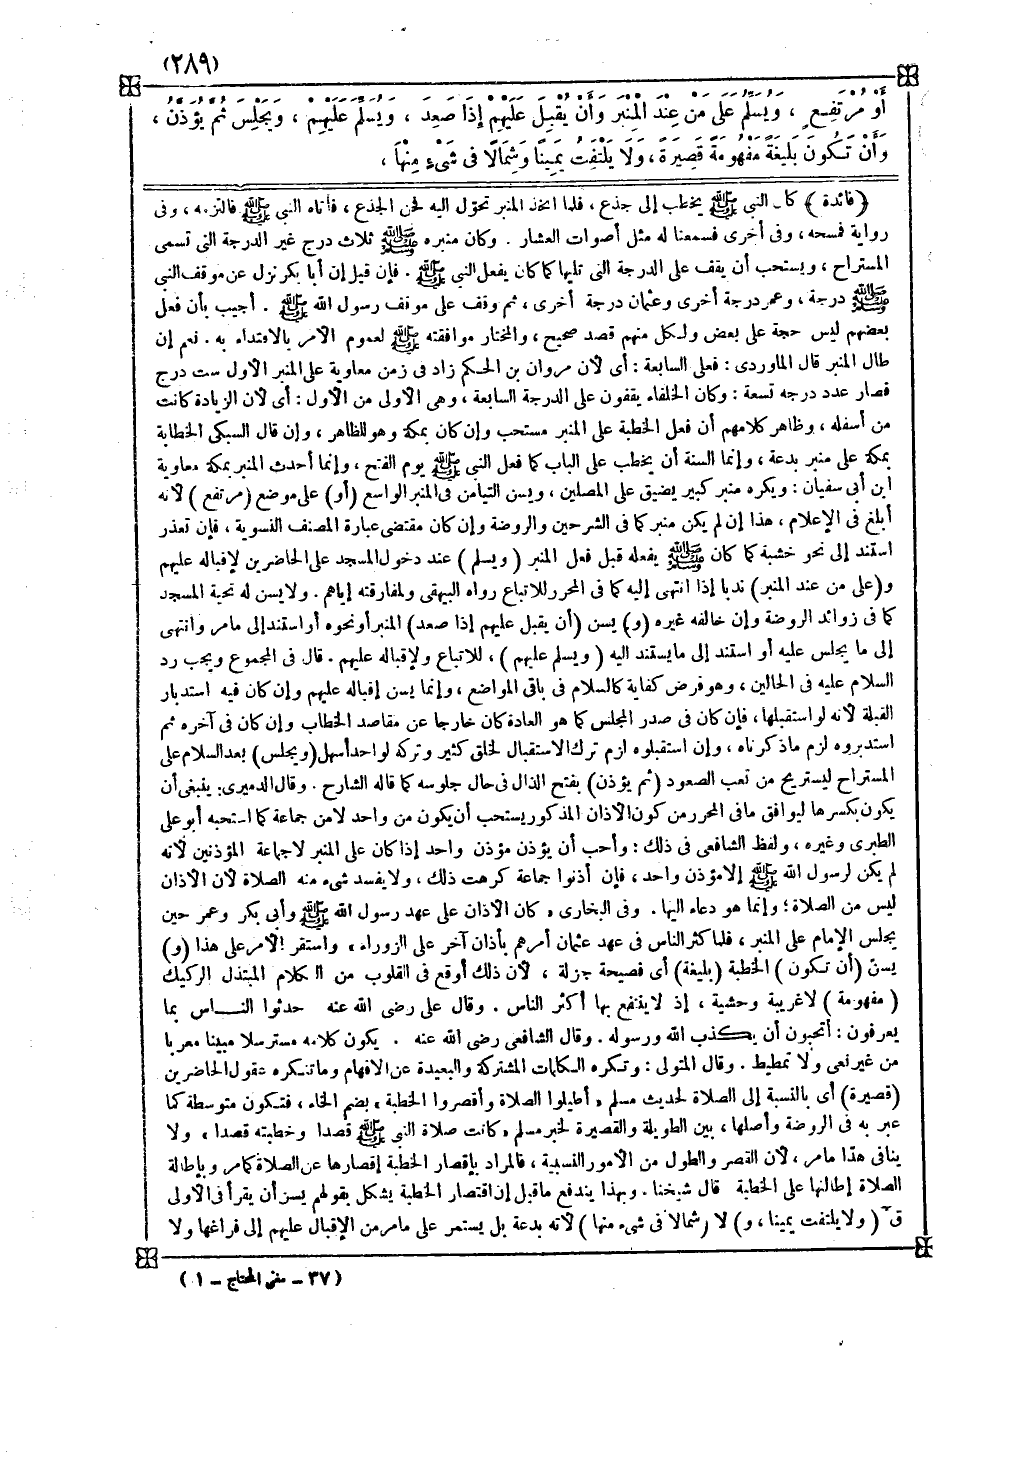 (٢٨٩)
أَوْ مُرْتَفِعٍ ، وَيُسَلِّمُ عَلَى مَنْ عِنْدَ الْمِنْبَرِ وَأَنْ يُقْبِلَ عَلَيْهِمْ إِذَا صَعِدَ ، وَيُسَلِّمُ عَلَيْهِمْ ، وَيَجْلِسَ ثُمَّ يُؤَذَّنُ ،
وَأَنْ تَكُونَ بَلِيغَةً مَفْهُومَةً قَصِيرَةً ، وَلَا يَلْتَفِتُ يَمِينًا وَشِمَالًا فى شَىْءٍ مِنْهَا ،
(فائدة) كان النبى ﷺ يخطب إلى جذع ، فلما اتخذ المنبر تحوّل اليه فحن الجذع ، فأتاه النبى ﷺ فالتزمه ، وفى
رواية فمسحه ، وفى أخرى فسمعنا له مثل أصوات العشار . وكان منبره ﷺ ثلاث درج غير الدرجة التى تسمى
المستراح ، ويستحب أن يقف على الدرجة التى تليها كما كان يفعل النبى ﷺ . فإن قيل إن أبا بكر نزل عن موقف النبى
ﷺ درجة ، وعمر درجة أخرى وعثمان درجة أخرى ، ثم وقف على موقف رسول الله ﷺ . أجيب بأن فعل
بعضهم ليس حجة على بعض ولكل منهم قصد صحيح ، والمختار موافقته ﷺ لعموم الأمر بالاقتداء به . نعم إن
طال المنبر قال الماوردى : فعلى السابعة : أى لأن مروان بن الحكم زاد فى زمن معاوية على المنبر الأول ست درج
قصار عدد درجه تسعة : وكان الخلفاء يقفون على الدرجة السابعة ، وهى الأولى من الأول : أى لأن الزيادة كانت
من أسفله ، وظاهر كلامهم أن فعل الخطبة على المنبر مستحب وإن كان بمكة وهو للظاهر ، وإن قال السبكى الخطابة
بمكة على منبر بدعة ، وإنما السنة أن يخطب على الباب كما فعل النبى ﷺ يوم الفتح ، وإنما أحدث المنبر بمكة معاوية
ابن أبى سفيان : ويكره منبر كبير يضيق على المصلين ، ويسن التيامن فى المنبر الواسع (أو) على موضع (مرتفع) لأنه
أبلغ فى الإعلام ، هذا إن لم يكن منبر كما فى الشرحين والروضة وإن كان مقتضى عبارة المصنف التسوية ، فإن تعذر
استند إلى نحو خشبة كما كان ﷺ يفعله قبل فعل المنبر (ويسلم) عند دخول المسجد على الحاضرين لإقباله عليهم
و(على من عند المنبر) ندبا إذا انتهى إليه كما فى المحرر للاتباع رواه البيهقى ولمفارقته إياهم . ولا يسن له تحية المسجد
كما فى زوائد الروضة وإن خالفه غيره (و) يسن (أن يقبل عليهم إذا صعد) المنبر أو نحوه أو استند إلى مامر وانتهى
إلى ما يجلس عليه أو استند إلى ما يستند اليه (ويسلم عليهم) ، للاتباع ولإقباله عليهم . قال فى المجموع ويجب رد
السلام عليه فى الحالين ، وهو فرض كفاية كالسلام فى باقى المواضع ، وإنما يسن إقباله عليهم وإن كان فيه استدبار
القبلة لأنه لو استقبلها ، فإن كان فى صدر المجلس كما هو العادة كان خارجا عن مقاصد الخطاب وإن كان فى آخره ثم
استدبروه لزم ماذكرناه ، وإن استقبلوه لزم ترك الاستقبال لخلق كثير وتركه لواحد أسهل (ويجلس) بعد السلام على
المستراح ليستريح من تعب الصعود (ثم يؤذن) بفتح الذال فى حال جلوسه كما قاله الشارح . وقال الدميرى : ينبغى أن
يكون بكسرها ليوافق مافى المحرر من كون الأذان المذكور يستحب أن يكون من واحد لا من جماعة كما استحبه أبو على
الطبرى وغيره ، ولفظ الشافعى فى ذلك : وأحب أن يؤذن مؤذن واحد إذا كان على المنبر لا جماعة المؤذنين لأنه
لم يكن لرسول الله ﷺ إلا مؤذن واحد ، فإن أذنوا جماعة كرهت ذلك ، ولا يفسد شىء منه الصلاة لأن الأذان
ليس من الصلاة ؛ وإنما هو دعاء اليها . وفى البخارى «كان الأذان على عهد رسول الله ﷺ وأبى بكر وعمر حين
يجلس الإمام على المنبر ، فلما كثر الناس فى عهد عثمان أمرهم بأذان آخر على الزوراء» واستقر الأمر على هذا (و)
يسن (أن تكون) الخطبة (بليغة) أى فصيحة جزلة ، لأن ذلك أوقع فى القلوب من الكلام المبتذل الركيك
(مفهومة) لا غريبة وحشية ، إذ لا ينتفع بها أكثر الناس . وقال على رضى الله عنه حدثوا النـــاس بما
يعرفون : أتحبون أن يكذب الله ورسوله . وقال الشافعى رضى الله عنه . يكون كلامه مسترسلا مبينا معربا
من غير تغنى ولا تمطيط . وقال المتولى : وتكره الكلمات المشتركة والبعيدة عن الأفهام وما تنكره عقول الحاضرين
(قصيرة) أى بالنسبة إلى الصلاة لحديث مسلم «أطيلوا الصلاة وأقصروا الخطبة» بضم الخاء ، فتكون متوسطة كما
عبر به فى الروضة وأصلها ، بين الطويلة والقصيرة لخبر مسلم «كانت صلاة النبى ﷺ قصدا وخطبته قصدا» ولا
ينافى هذا مامر ، لأن القصر والطول من الأمور النسبية ، فالمراد بإقصار الخطبة إقصارها عن الصلاة كمامر وبإطالة
الصلاة إطالتها على الخطبة قال شيخنا . وبهذا يندفع ماقيل إن اقتصار الخطبة يشكل بقولهم يسن أن يقرأ فى الأولى
قٓ (ولا يلتفت يمينا ، و) لا (شمالا فى شىء منها) لأنه بدعة بل يستمر على مامر من الإقبال عليهم إلى فراغها ولا
(٣٧ - مغنى المحتاج - ١)